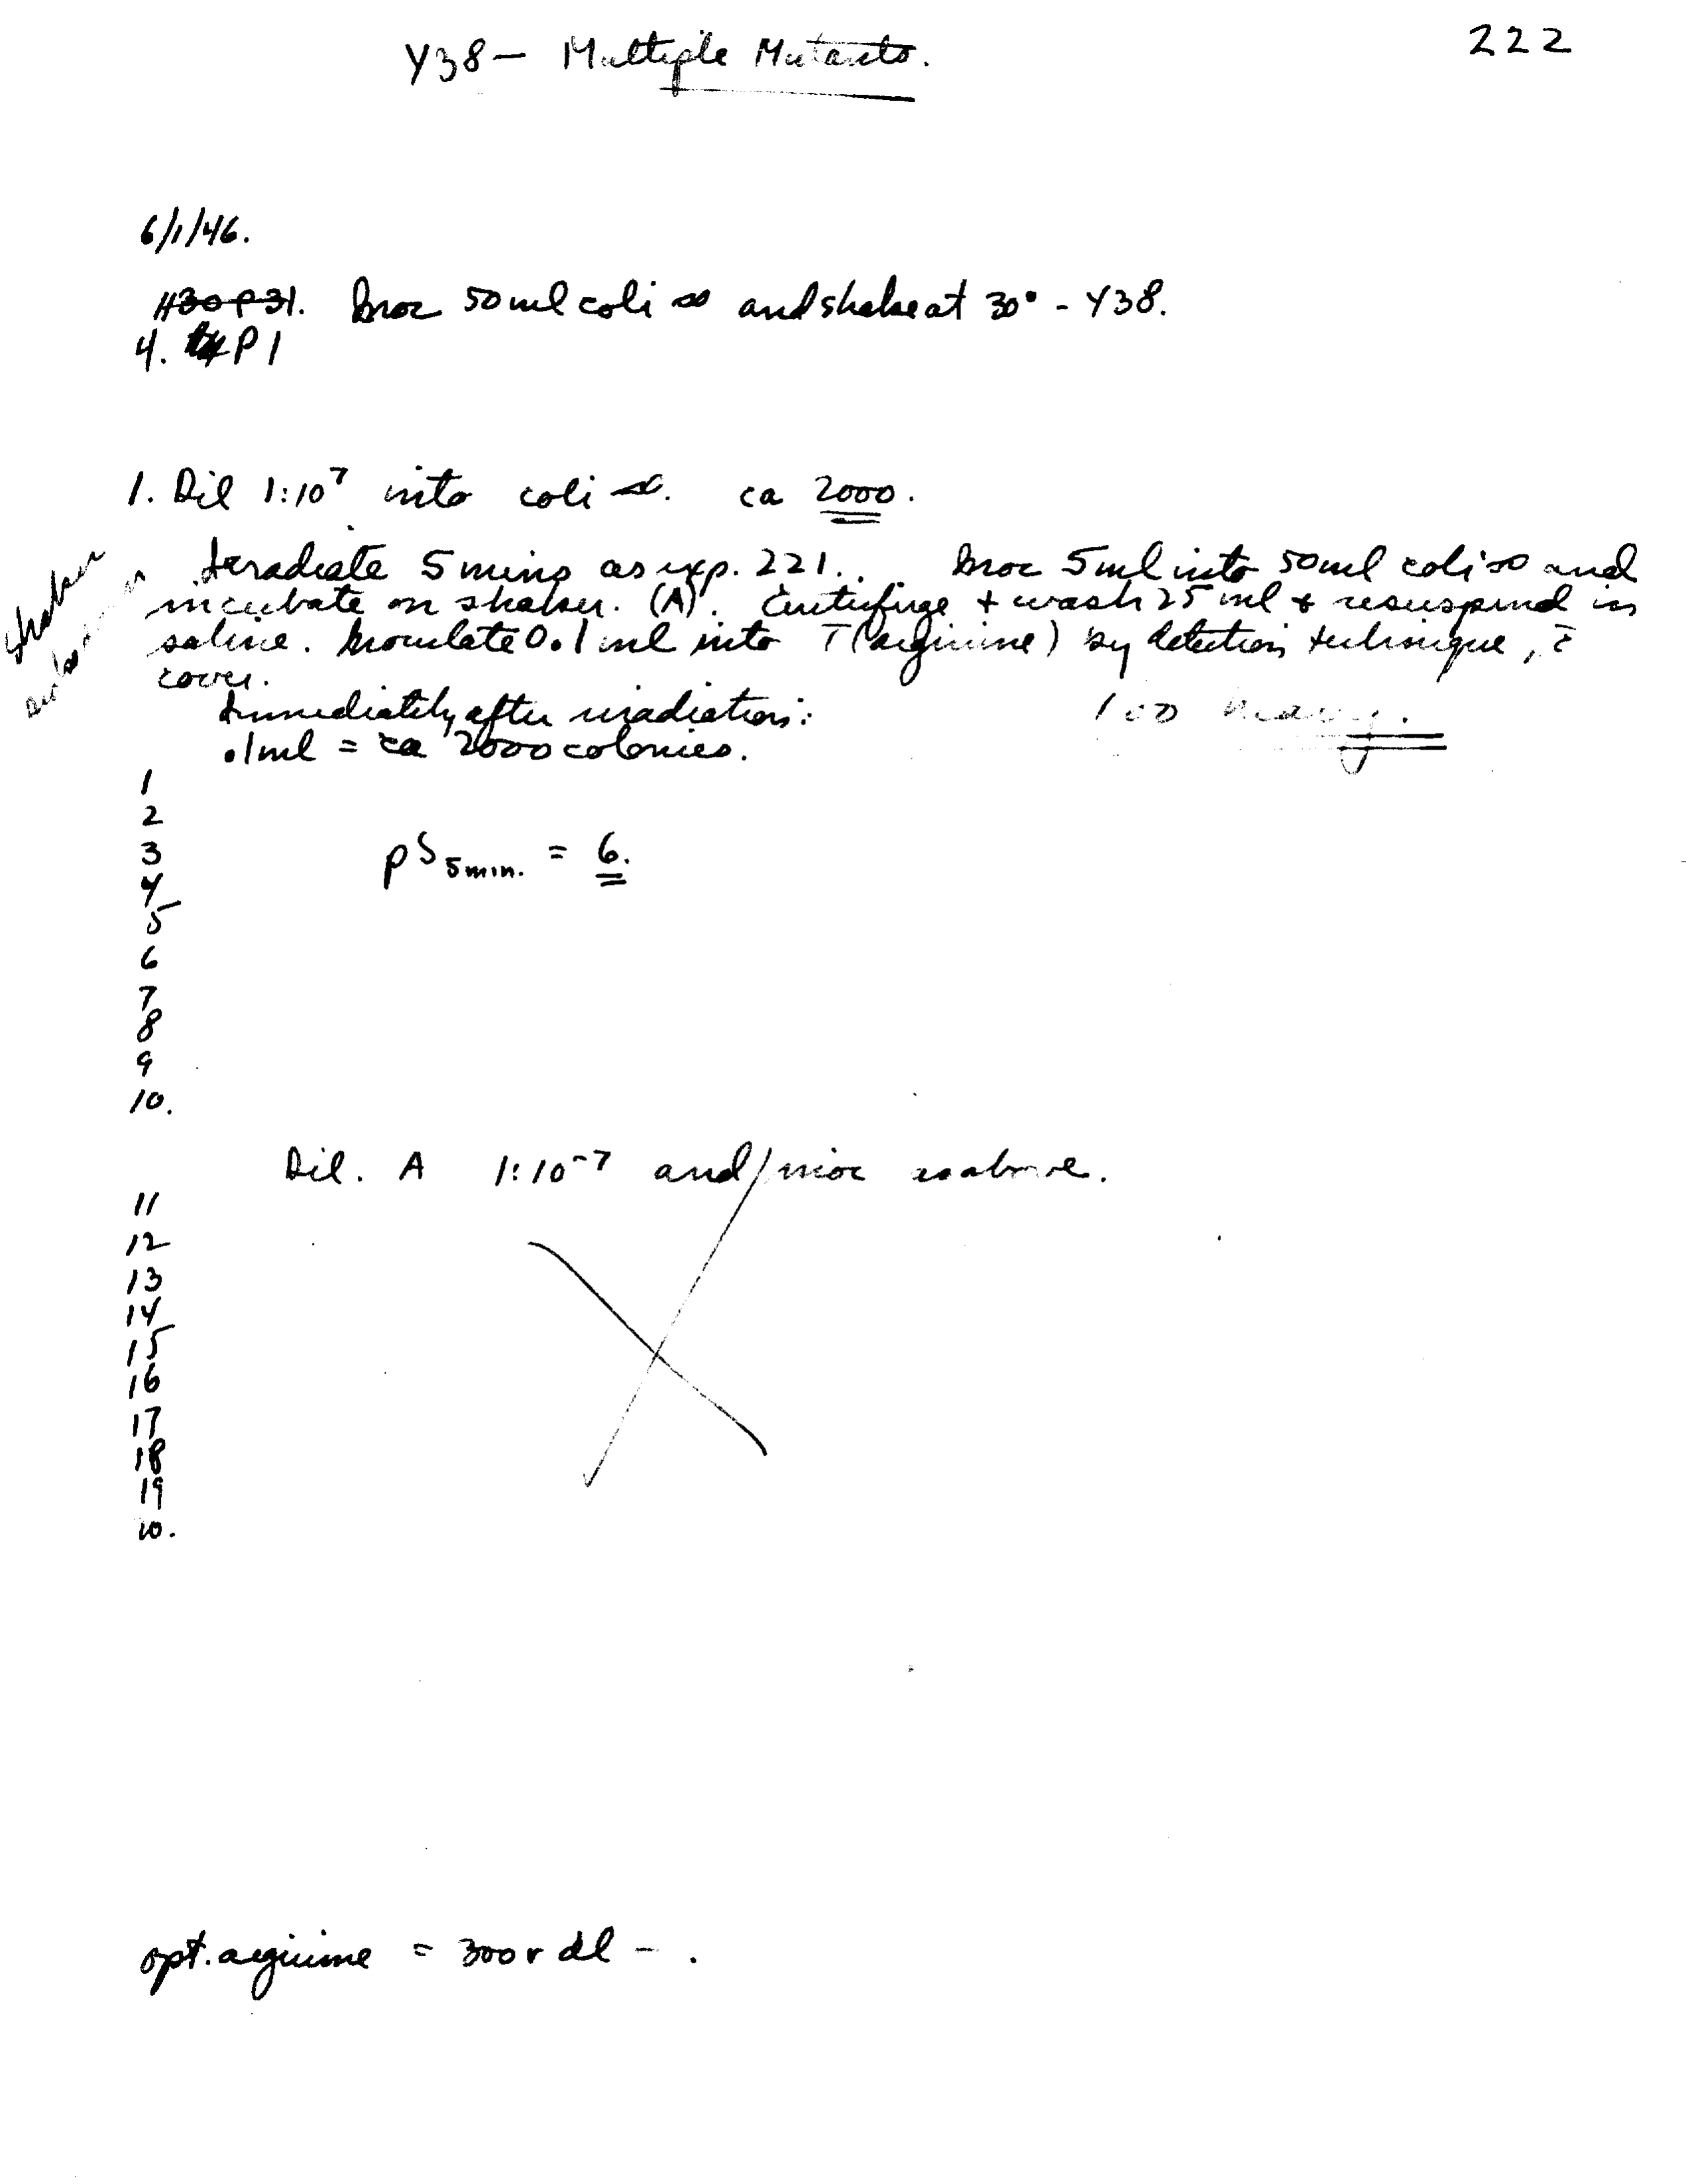 Y38 — Multiple Mutants.
222
6/1/46.
1130 P 31. Inoc 50 ml coli ∞ and shake at 30° - Y38.
4. P 1
1. Dil 1:10⁷ into coli ∞. ca 2000.
Irradiate 5 mins as exp. 221. Inoc 5 ml into 50 ml coli ∞ and
incubate on shaker. (A). Centrifuge + wash 25 ml + resuspend in
saline. Inoculate 0.1 ml into T (arginine) by detection technique, c̄
cover.
shaker
Immediately after irradiation:
.1ml = ca 2000 colonies.
100 heavy.
1
2
3
pS 5 min. = 6.
4
5
6
7
8
9
10.
Dil. A 1:10⁻⁷ and inoc as above.
11
12
13
14
15
16
17
18
19
10.
opt. arginine = 300 γ dl - .